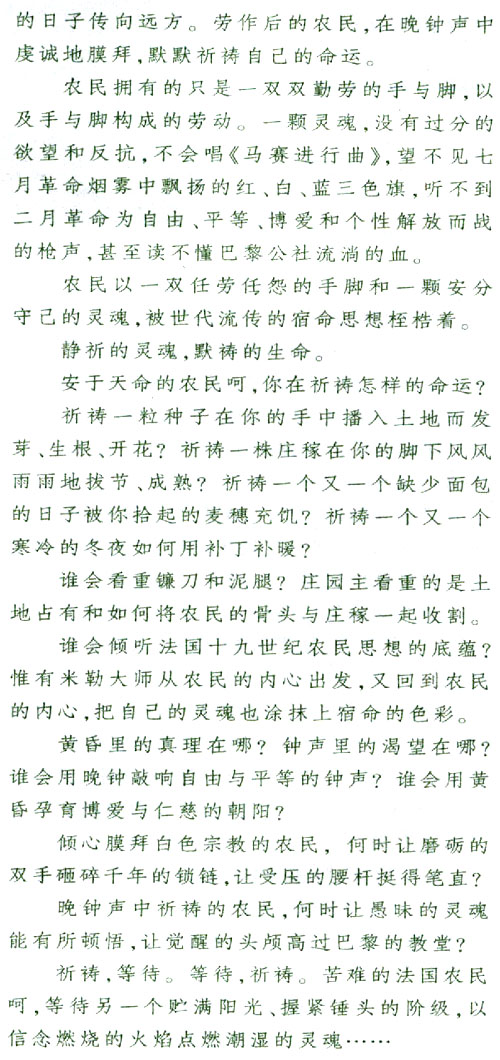 的日子传向远方。劳作后的农民,在晚钟声中
虔诚地膜拜,默默祈祷自己的命运。
农民拥有的只是一双双勤劳的手与脚,以
及手与脚构成的劳动。一颗灵魂,没有过分的
欲望和反抗,不会唱《马赛进行曲》,望不见七
月革命烟雾中飘扬的红、白、蓝三色旗,听不到
二月革命为自由、平等、博爱和个性解放而战
的枪声,甚至读不懂巴黎公社流淌的血。
农民以一双任劳任怨的手脚和一颗安分
守己的灵魂,被世代流传的宿命思想桎梏着。
静祈的灵魂,默祷的生命。
安于天命的农民呵,你在祈祷怎样的命运?
祈祷一粒种子在你的手中播入土地而发
芽、生根、开花?祈祷一株庄稼在你的脚下风风
雨雨地拔节、成熟?祈祷一个又一个缺少面包
的日子被你拾起的麦穗充饥?祈祷一个又一个
寒冷的冬夜如何用补丁补暖?
谁会看重镰刀和泥腿?庄园主看重的是土
地占有和如何将农民的骨头与庄稼一起收割。
谁会倾听法国十九世纪农民思想的底蕴?
惟有米勒大师从农民的内心出发,又回到农民
的内心,把自己的灵魂也涂抹上宿命的色彩。
黄昏里的真理在哪?钟声里的渴望在哪?
谁会用晚钟敲响自由与平等的钟声?谁会用黄
昏孕育博爱与仁慈的朝阳?
倾心膜拜白色宗教的农民,何时让磨砺的
双手砸碎千年的锁链,让受压的腰杆挺得笔直?
晚钟声中祈祷的农民,何时让愚昧的灵魂
能有所顿悟,让觉醒的头颅高过巴黎的教堂?
祈祷,等待。等待,祈祷。苦难的法国农民
呵,等待另一个贮满阳光、握紧锤头的阶级,以
信念燃烧的火焰点燃潮湿的灵魂……